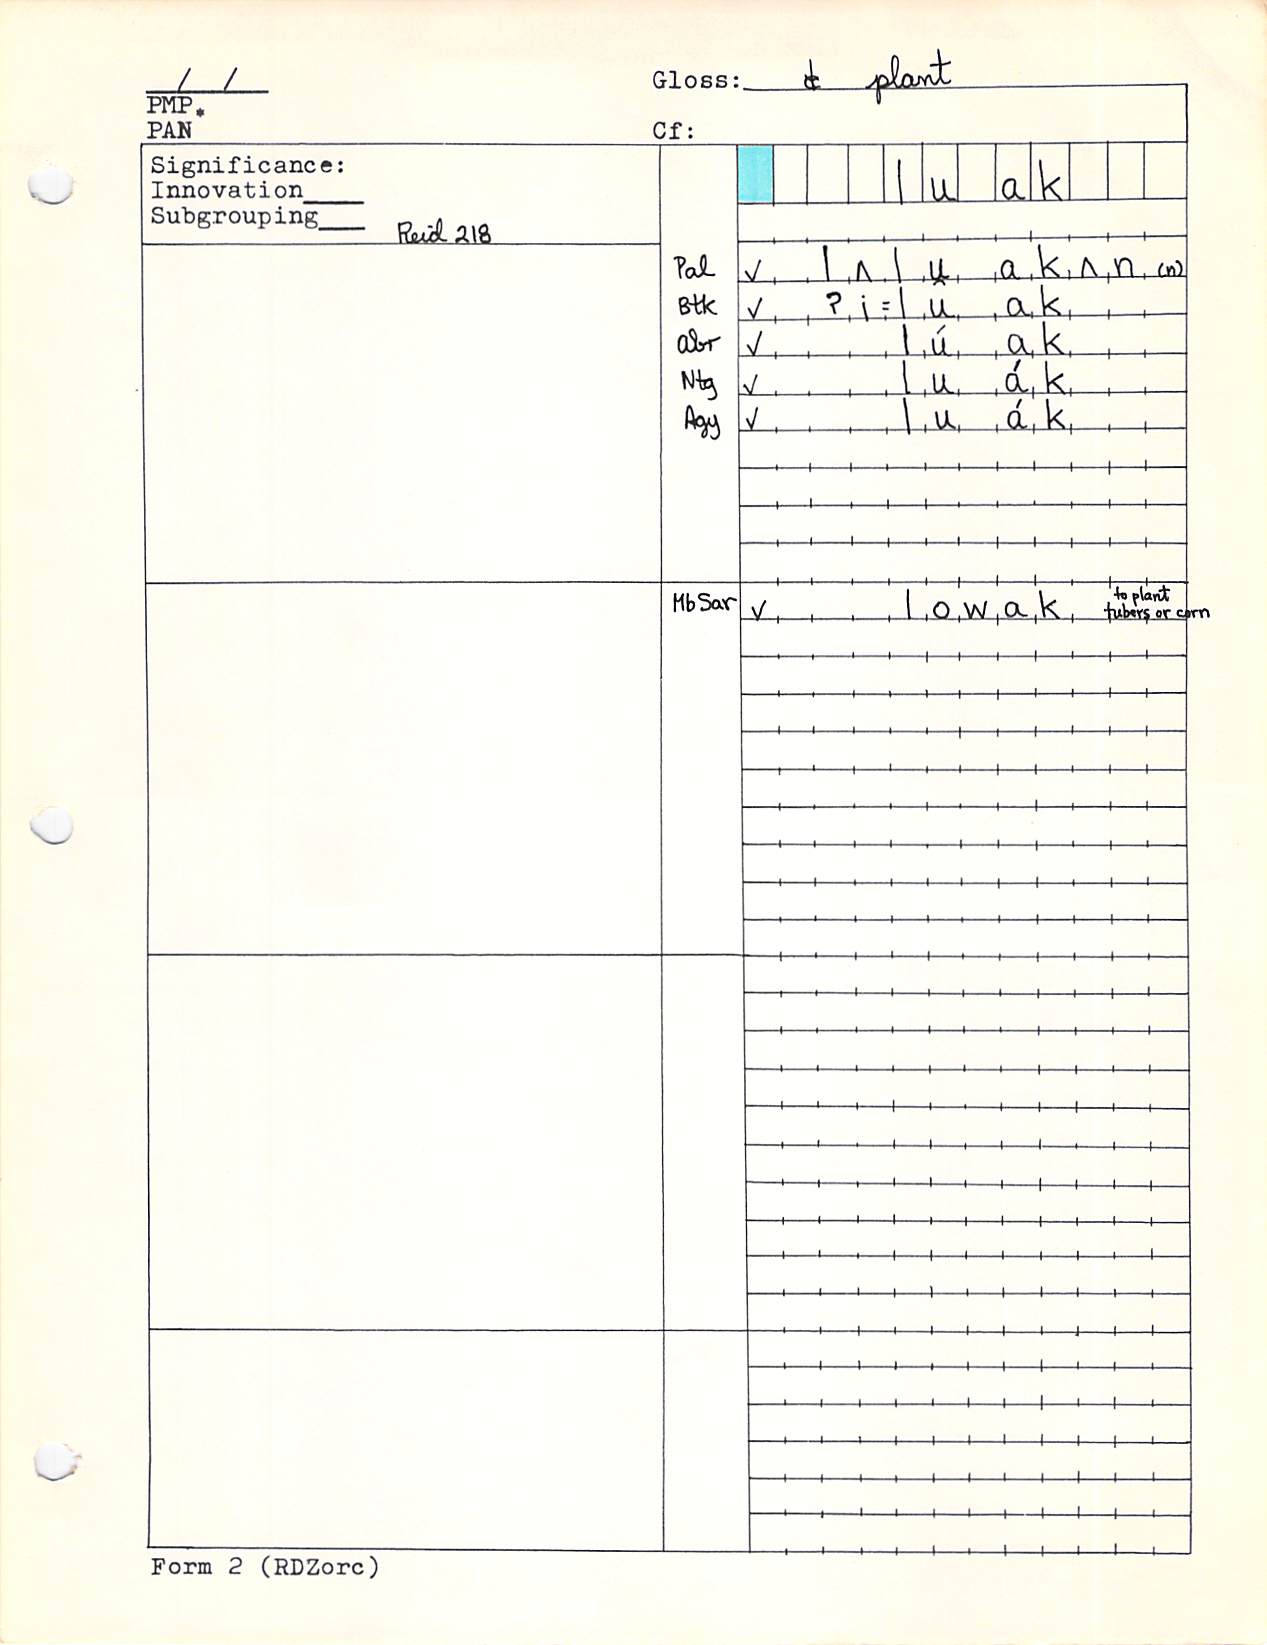 / /
Gloss: ȼ plant
PMP*
PAN
Cf:
Significance:
Innovation____
Subgrouping____
Reid 218
lu ak
Pal ✓ lʌlu akʌn (n)
Btk ✓ ʔi=lû ak
Abr ✓ lú ak
Ntg ✓ lu ák
Agy ✓ lu ák
MbSar ✓ lowak to plant
tubers or corn
Form 2 (RDZorc)